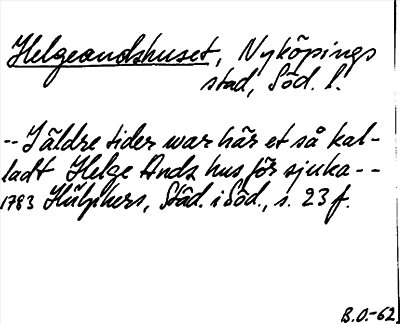 Helgeandshuset, Nyköpings
stad, Söd. l.
-- I äldre tider war här et så kal-
ladt Helge Ands hus för sjuka--
1783 Hülphers, Städ. i Söd., s. 23 f.
B.O.-62